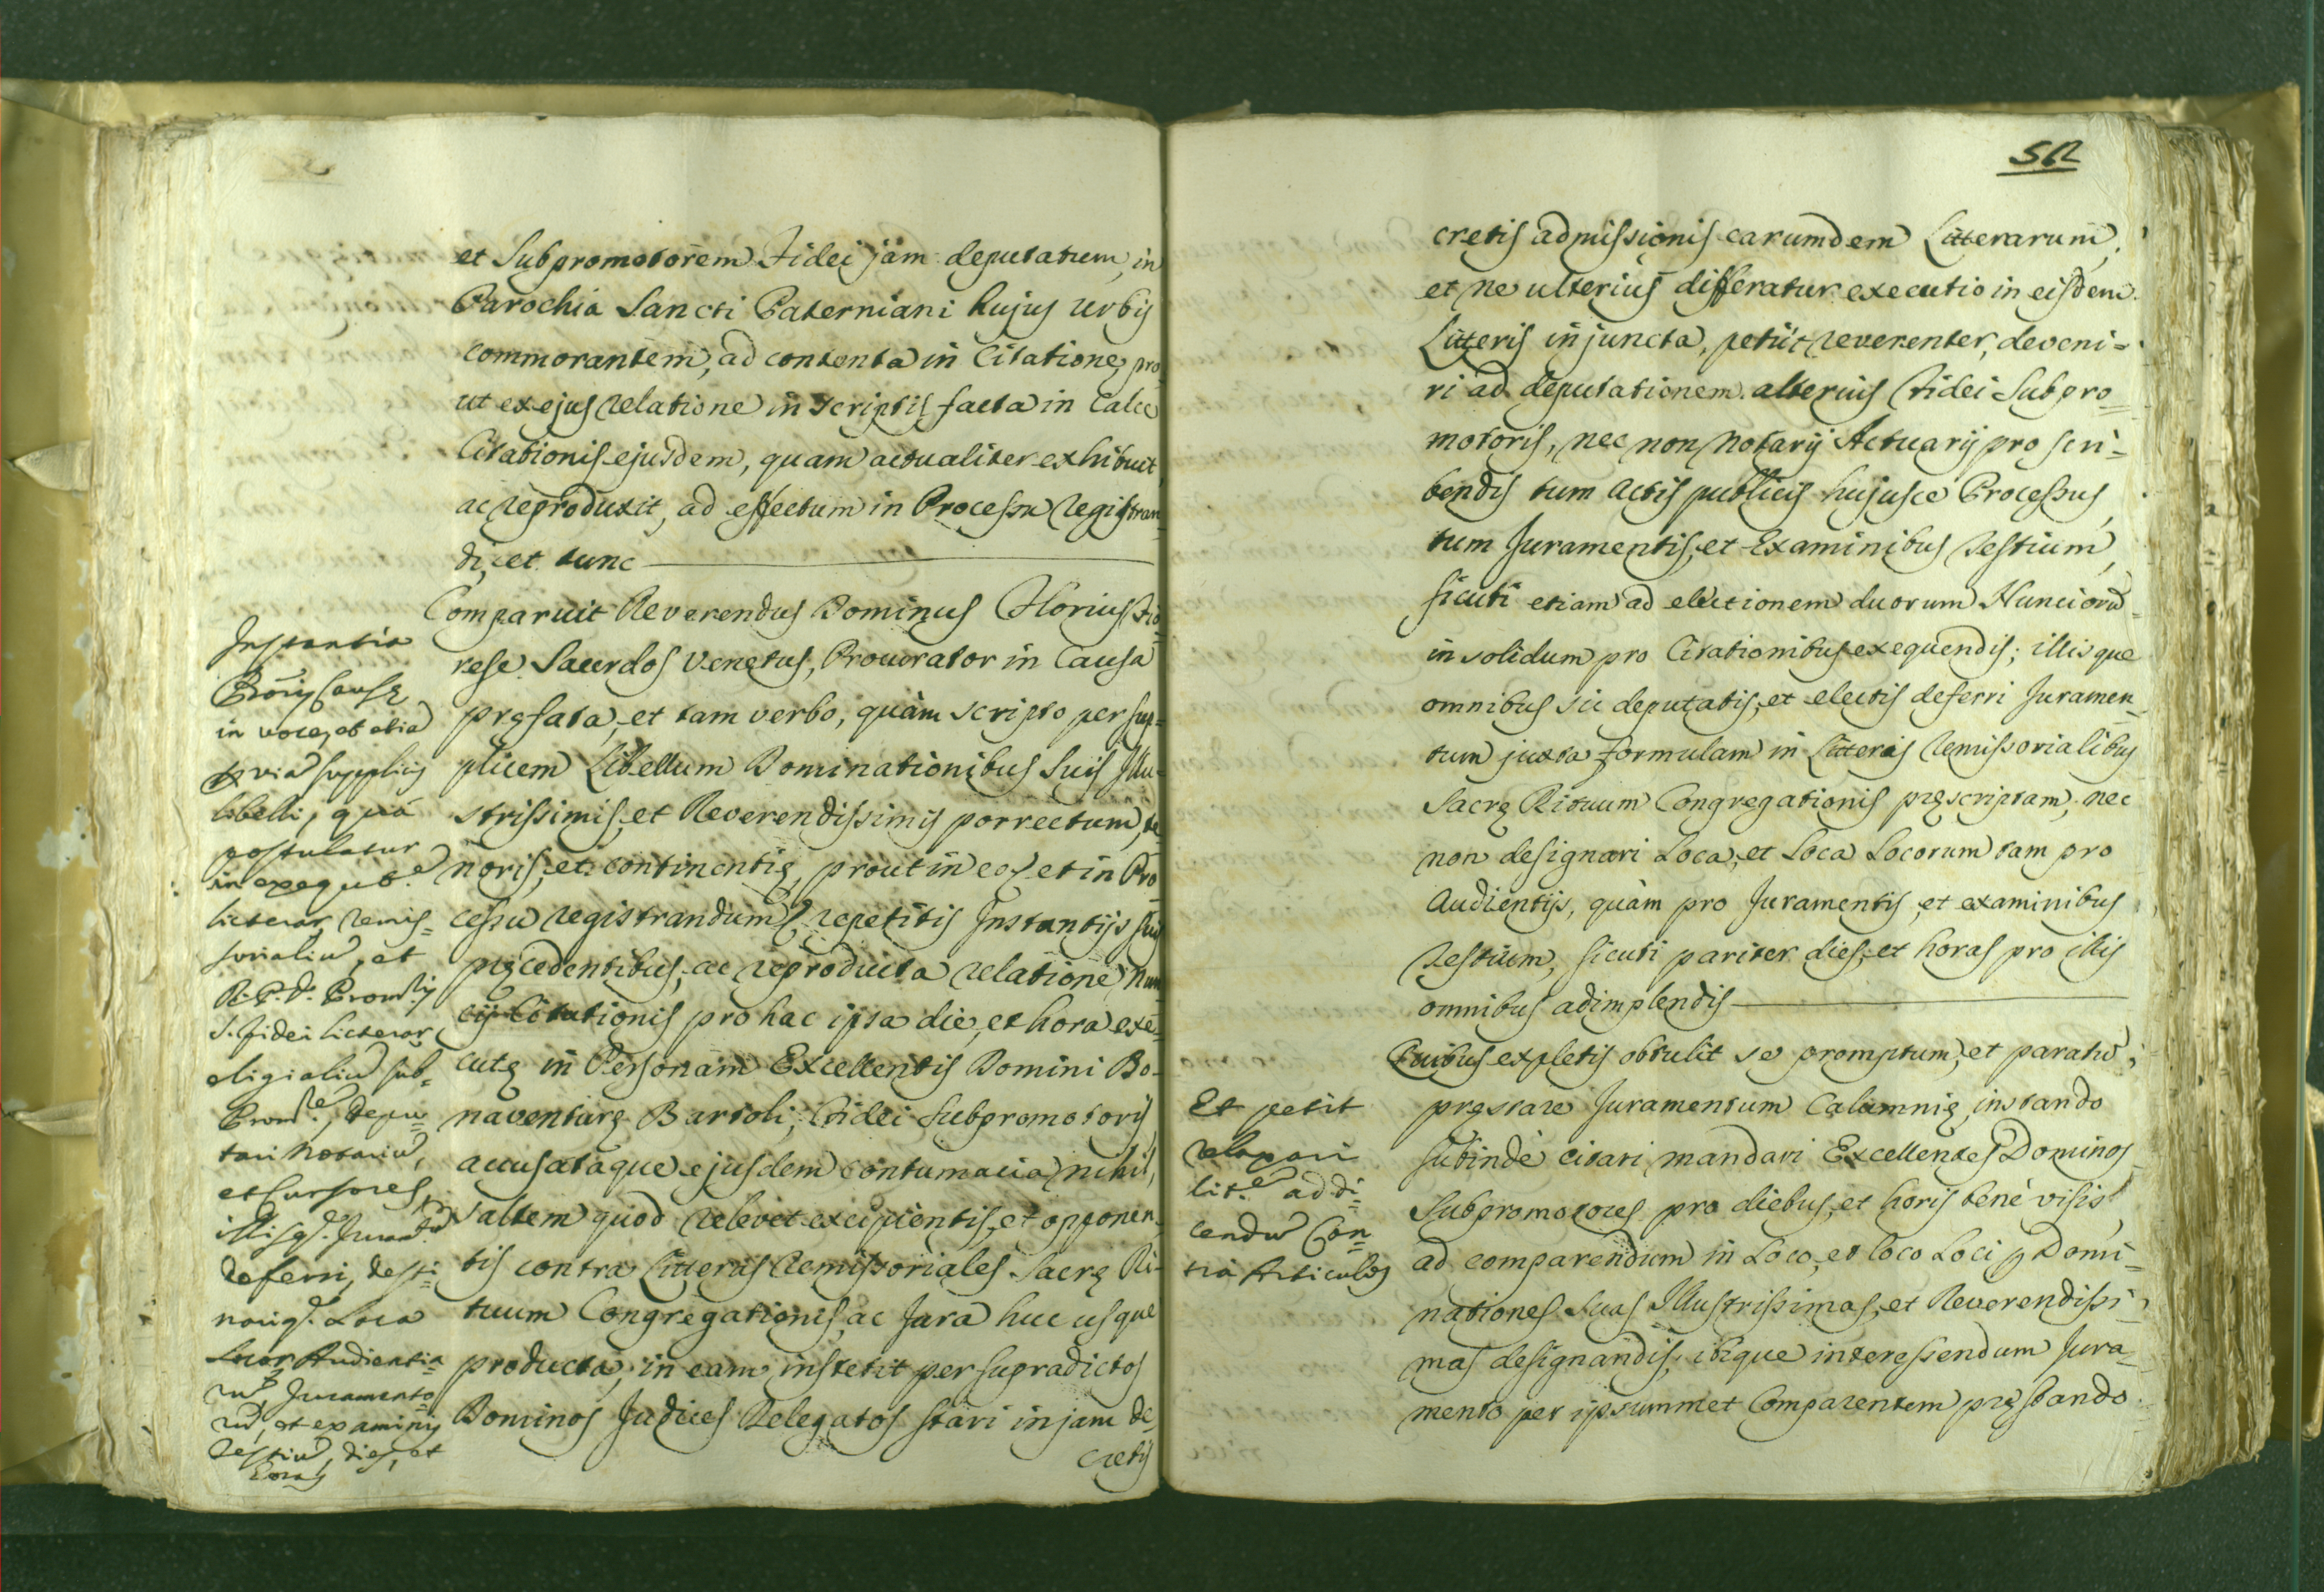 et Subpromotorem Fidei jàm deputatum, in
Parochia Sancti Paterniani hujus Urbis
commorantem, ad contenta in Citatione, pro
ut ex ejus relatione in scriptis facta in Calce
Citationis ejusdem, quam actualiter exhibuit
ac reproduxit, ad effectum in Processu registran
di, et tunc
Comparuit Reverendus Dominus Florius Fio
rese Sacerdos Venetus, Procurator in Causa
pręfata, et tam verbo, quàm scripto per sup-
plicem Libellum Dominationibus Suis Illu-
strissimis, et Reverendissimis porrectum, te
noris, et continentię, prout in eo, et in Pro
cessu registrandum, repetitis Instantijs suis
pręcedentibus, ac reproducta relatione Nun
cij Citationis pro hac ipsa die, et hora exe-
cutę in Personam Excellentis Domini Bo-
naventurę Bartoli, Fidei Subpromotoris,
accusataque ejusdem contumacia nihil,
saltem quod relevet excipientis, et opponen-
tis contra Litteras Remissoriales Sacrę Ri-
tuum Congregationis, ac Jura huc usque
producta, in eam institit per supradictos
Dominos Judices Delegatos stari in jam de-
cretis
Instantia
Proris Causę
in voce, et etia
via supplicis
libelli, qua
postulatur
in exequut.e
litterar remis-
sorialiu, et
R. P. D. Prom.ris
S. Fidei litterar
sub-
Prom.re, depu=
tari Notariu,
et Cursores,
illisq. Juram.tu
deferri, desi-
nariq. Loca
Locor Audientia-
ru Juramento-
ru, et examinis
Testiu, dies, et
horas
52
cretis admissionis earumdem Litterarum,
et ne ulterius differatur executio in eisdem
Litteris injuncta, petijt reverenter, deveni-
ri ad deputationem alterius Fidei Subpro-
motoris, nec non Notarij Actuarij pro scri-
bendis tum Actis publicis hujusce Processus,
tum Juramentis, et Examinibus Testium,
sicuti etiam ad electionem duorum Nuncioru
in solidum pro Citationibus exequendis; illisque
omnibus sic deputatis, et electis deferri Juramen-
tum juxta formulam in Litteris remissorialibus
Sacrę Rituum Congregationis pręscriptam; nec
non designari Loca, et Loca Locorum tam pro
Audientijs, quàm pro Juramentis, et examinibus
Testium, sicuti pariter dies, et horas pro illis
omnibus adimplendis
Quibus expletis obtulit se promptum, et paratu,
pręstare Juramentum Calumnię, instando
subindè citari mandari Excellentes Dominos
Subpromotores pro diebus, et horis benè visis,
ad comparendum in Loco, et loco Loci p Domi-
nationes Suas Illustrissimas, et Reverendissi-
mas designandis, ibique interessendum Jura-
mento per ipsummet Comparentem pręstando
Et petit
relaxari
lit.e ad di-
cendu Con=
tra Articulos